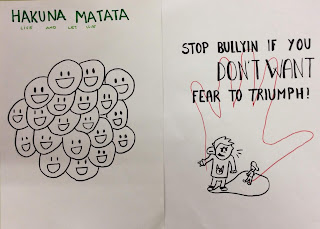 HAKUNA MATATA
LIVE AND LET LIVE
STOP BULLYIN IF YOU
DON'T WANT
FEAR TO TRIUMPH!